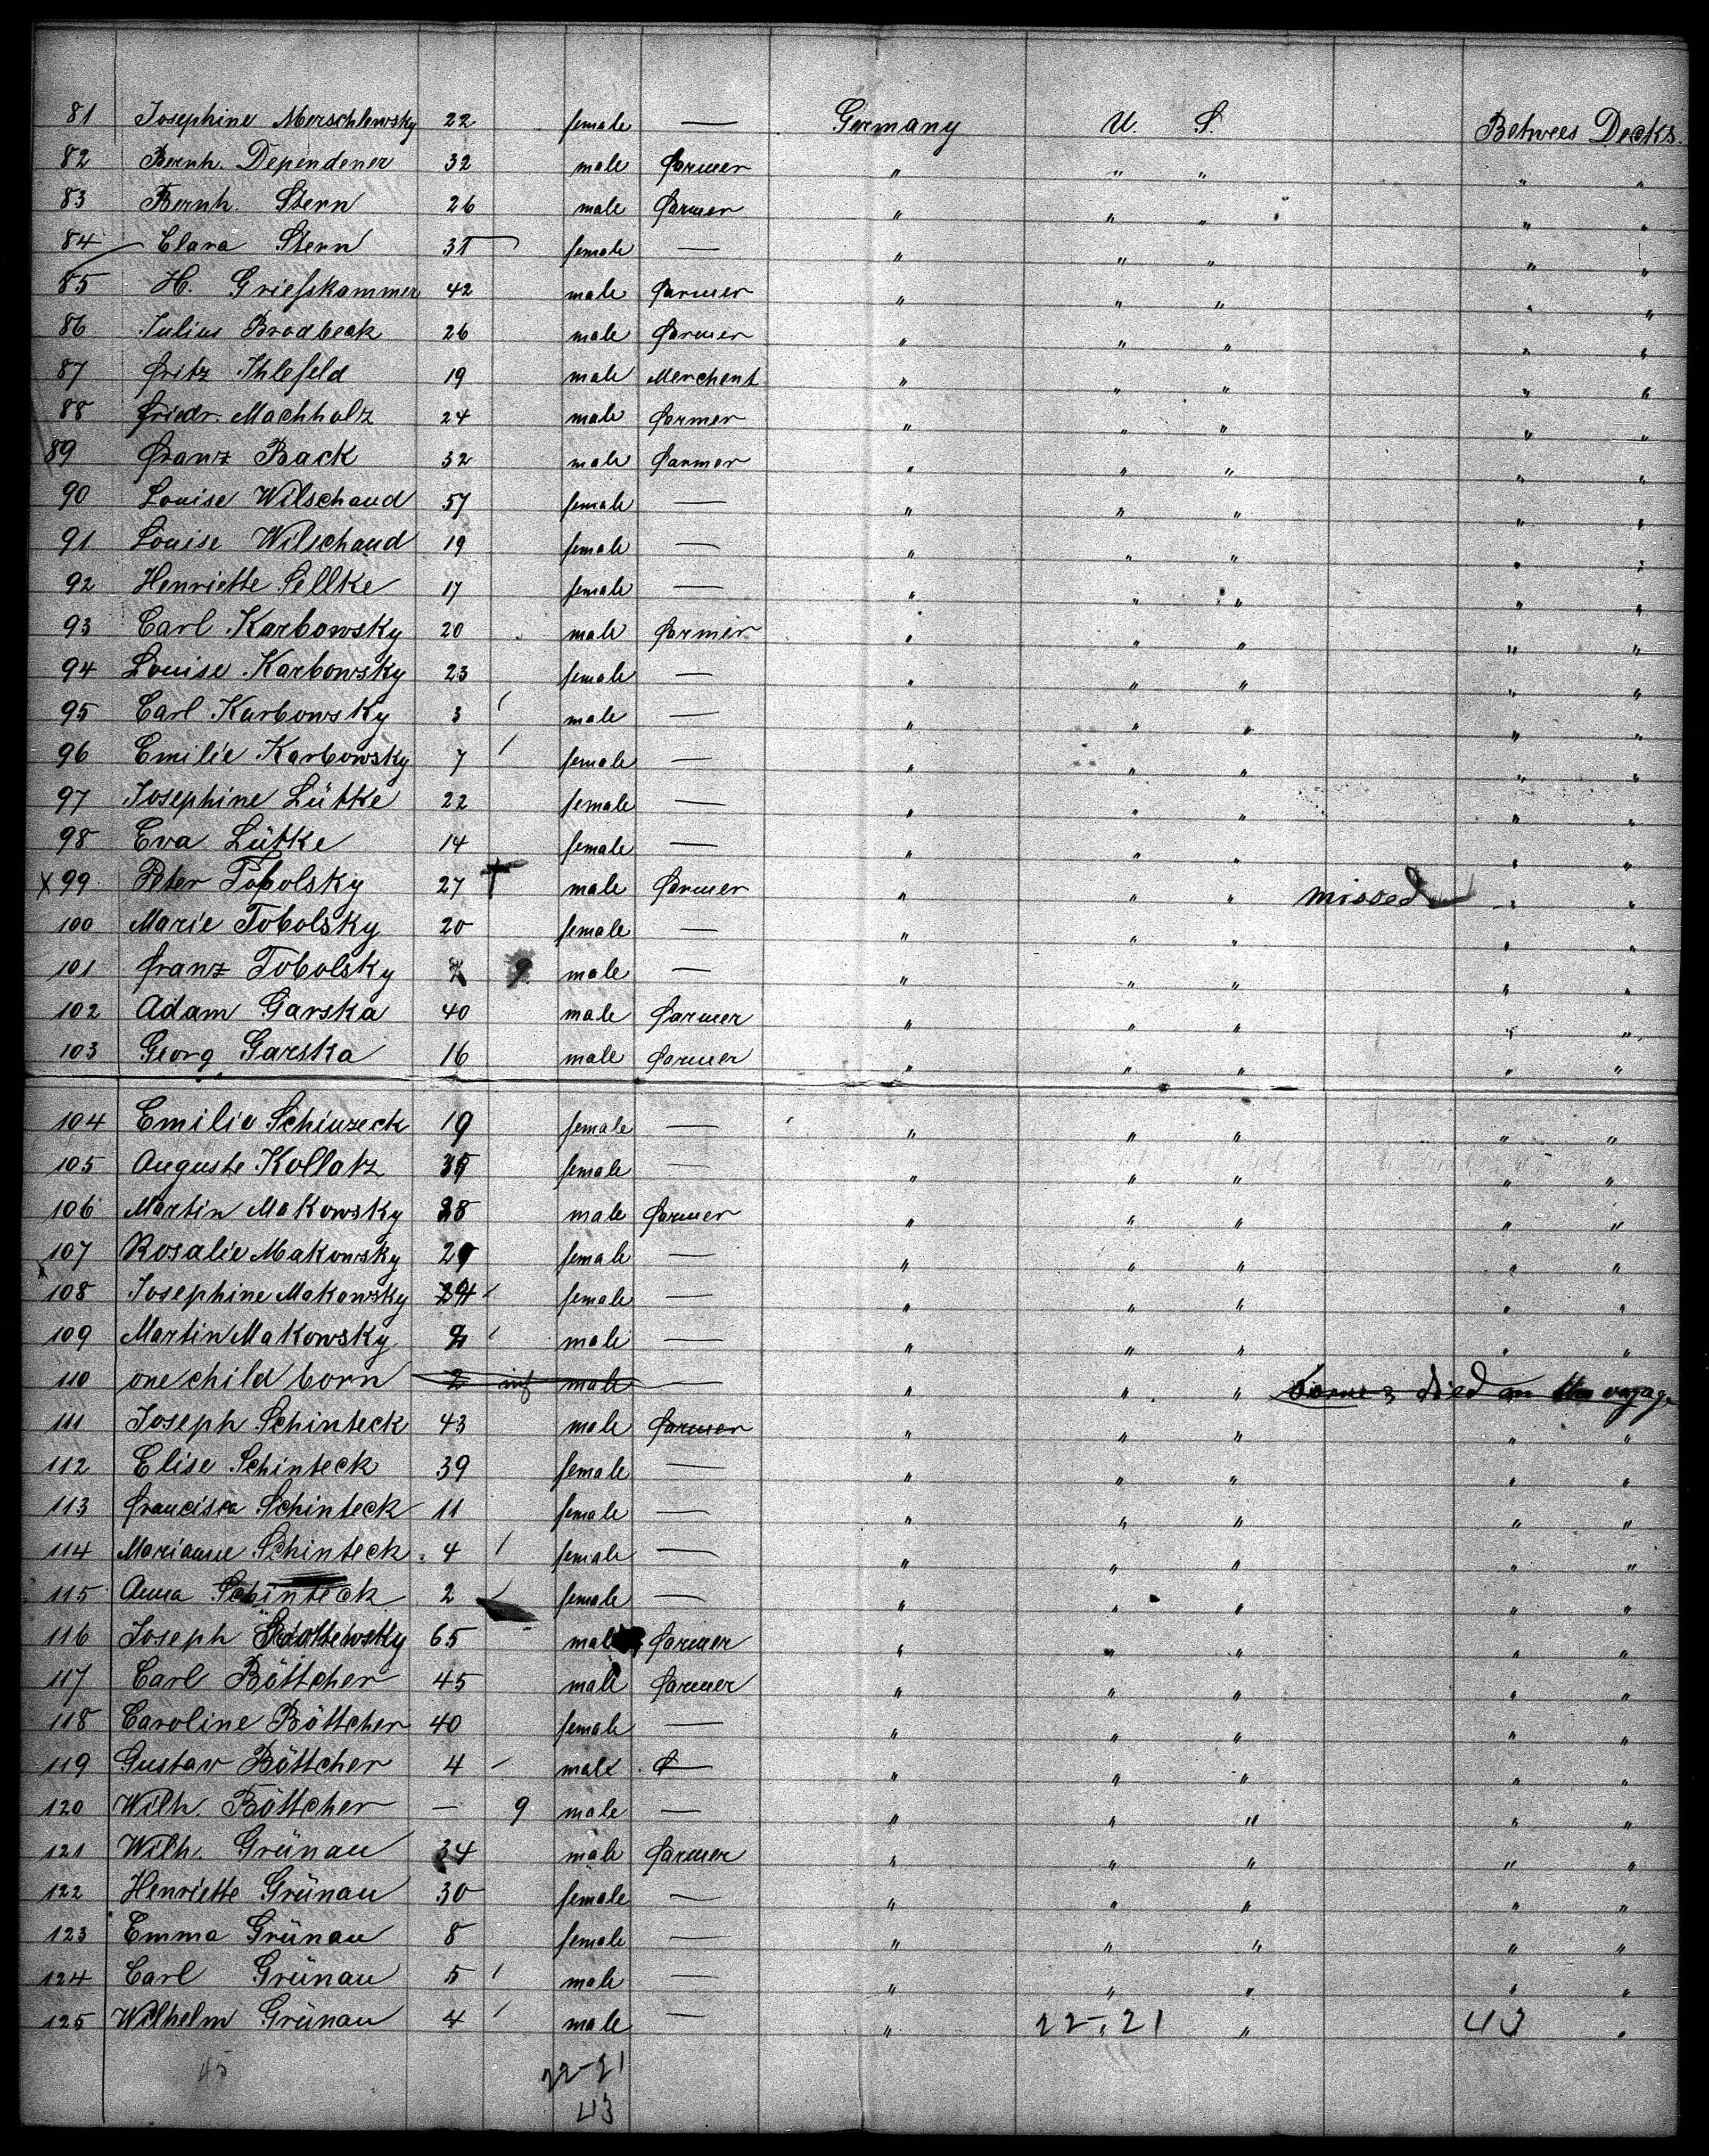 81 Josephine Merschlewsky 22 female — Germany U. S. Betwees Decks.
82 Bernh. Dependener 32 male farmer " " " " "
83 Bernh. Stern 26 male farmer " " " " "
84 Clara Stern 31 female — " " " " "
85 H. Grießkammer 42 male farmer " " " " "
86 Julius Brodbeck 26 male farmer " " " " "
87 Fritz Ihlefeld 19 male Merchent " " " " "
88 Friedr. Machholz 24 male farmer " " " " "
89 Franz Back 32 male farmer " " " " "
90 Louise Wilschaud 57 female — " " " " "
91 Louise Wilschaud 19 female — " " " " "
92 Henriette Sellke 17 female — " " " " "
93 Carl Karbowsky 20 male farmer " " " " "
94 Louise Karbowsky 23 female — " " " " "
95 Carl Karbowsky 3 male — " " " " "
96 Emilie Karbowsky 7 female — " " " " "
97 Josephine Lütke 22 female — " " " " "
98 Eva Lütke 14 female — " " " " "
x 99 Peter Tobolsky 27 † male farmer " " " missed " "
100 Marie Tobolsky 20 female — " " " " "
101 Franz Tobolsky 9 male — " " " " "
102 Adam Garska 40 male farmer " " " " "
103 Georg Garska 16 male farmer " " " " "
104 Emilie Schinzeck 19 female — " " " " "
105 Auguste Kollatz female — " " " " "
106 Martin Makowsky 28 male farmer " " " " "
107 Rosalie Makowsky female — " " " " "
108 Josephine Makowsky female — " " " " "
109 Martin Makowsky male — " " " " "
110 one child born 2 inf male — " " " borne & died on the voyage
111 Joseph Schinteck 43 male farmer " " " " "
112 Elise Schinteck 39 female — " " " " "
113 Francisca Schinteck 11 female — " " " " "
114 Marianne Schinteck 4 female — " " " " "
115 Anna Schinteck 2 female — " " " " "
116 Joseph 65 male farmer " " " " "
117 Carl Böttcher 45 male farmer " " " " "
118 Caroline Böttcher 40 female — " " " " "
119 Gustav Böttcher 4 male — " " " " "
120 Wilh. Böttcher — 9 male — " " " " "
121 Wilh. Grünau 34 male farmer " " " " "
122 Henriette Grünau 30 female — " " " " "
123 Emma Grünau 8 female — " " " " "
124 Carl Grünau 5 male — " " " " "
125 Wilhelm Grünau 4 male — " 22-21 " 43 "
45 22-21
43